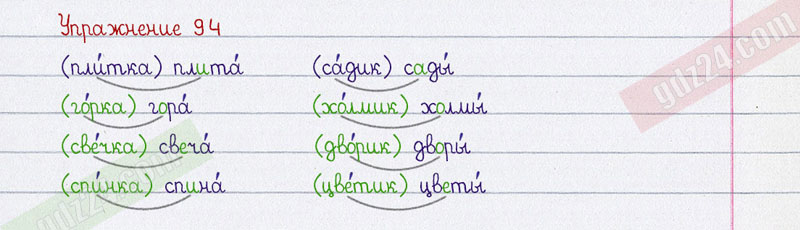 Упражнение 94
(пли́тка) плита́ (са́дик) сады́
(го́рка) гора́ (хо́лмик) холмы́
(све́чка) свеча́ (дво́рик) дворы́
(спи́нка) спина́ (цве́тик) цветы́
gdz24.com
gdz24.com